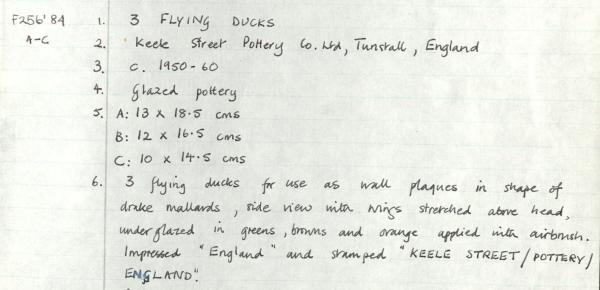 F256'84 1. 3 FLYING DUCKS
A-C 2. Keele Street Pottery Co. Ltd, Tunstall, England
3. C. 1950-60
4. Glazed pottery
5. A: 13 x 18.5 cms
B: 12 x 16.5 cms
C: 10 x 14.5 cms
6. 3 flying ducks for use as wall plaques in shape of
drake mallards, side view with wings stretched above head,
underglazed in greens, browns and orange applied with airbrush.
Impressed "England" and stamped "KEELE STREET/POTTERY/
ENGLAND".